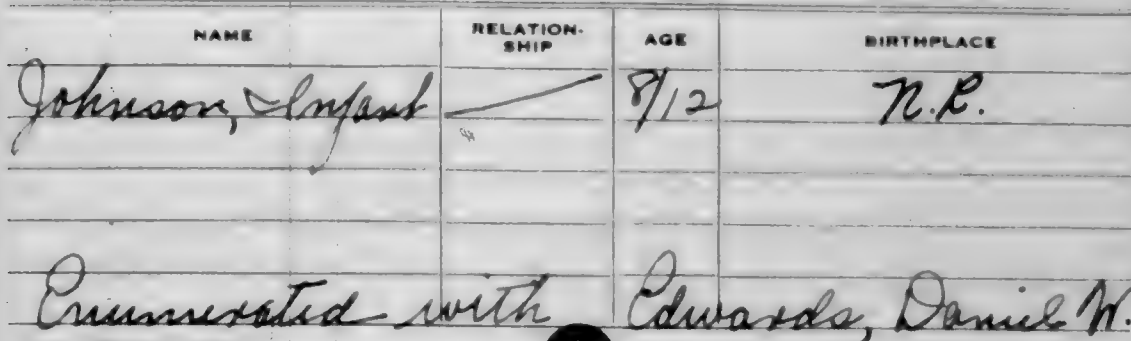 NAME RELATION-SHIP AGE BIRTHPLACE
Johnson, Infant 8/12 N.C.
Enumerated with Edwards, Daniel W.